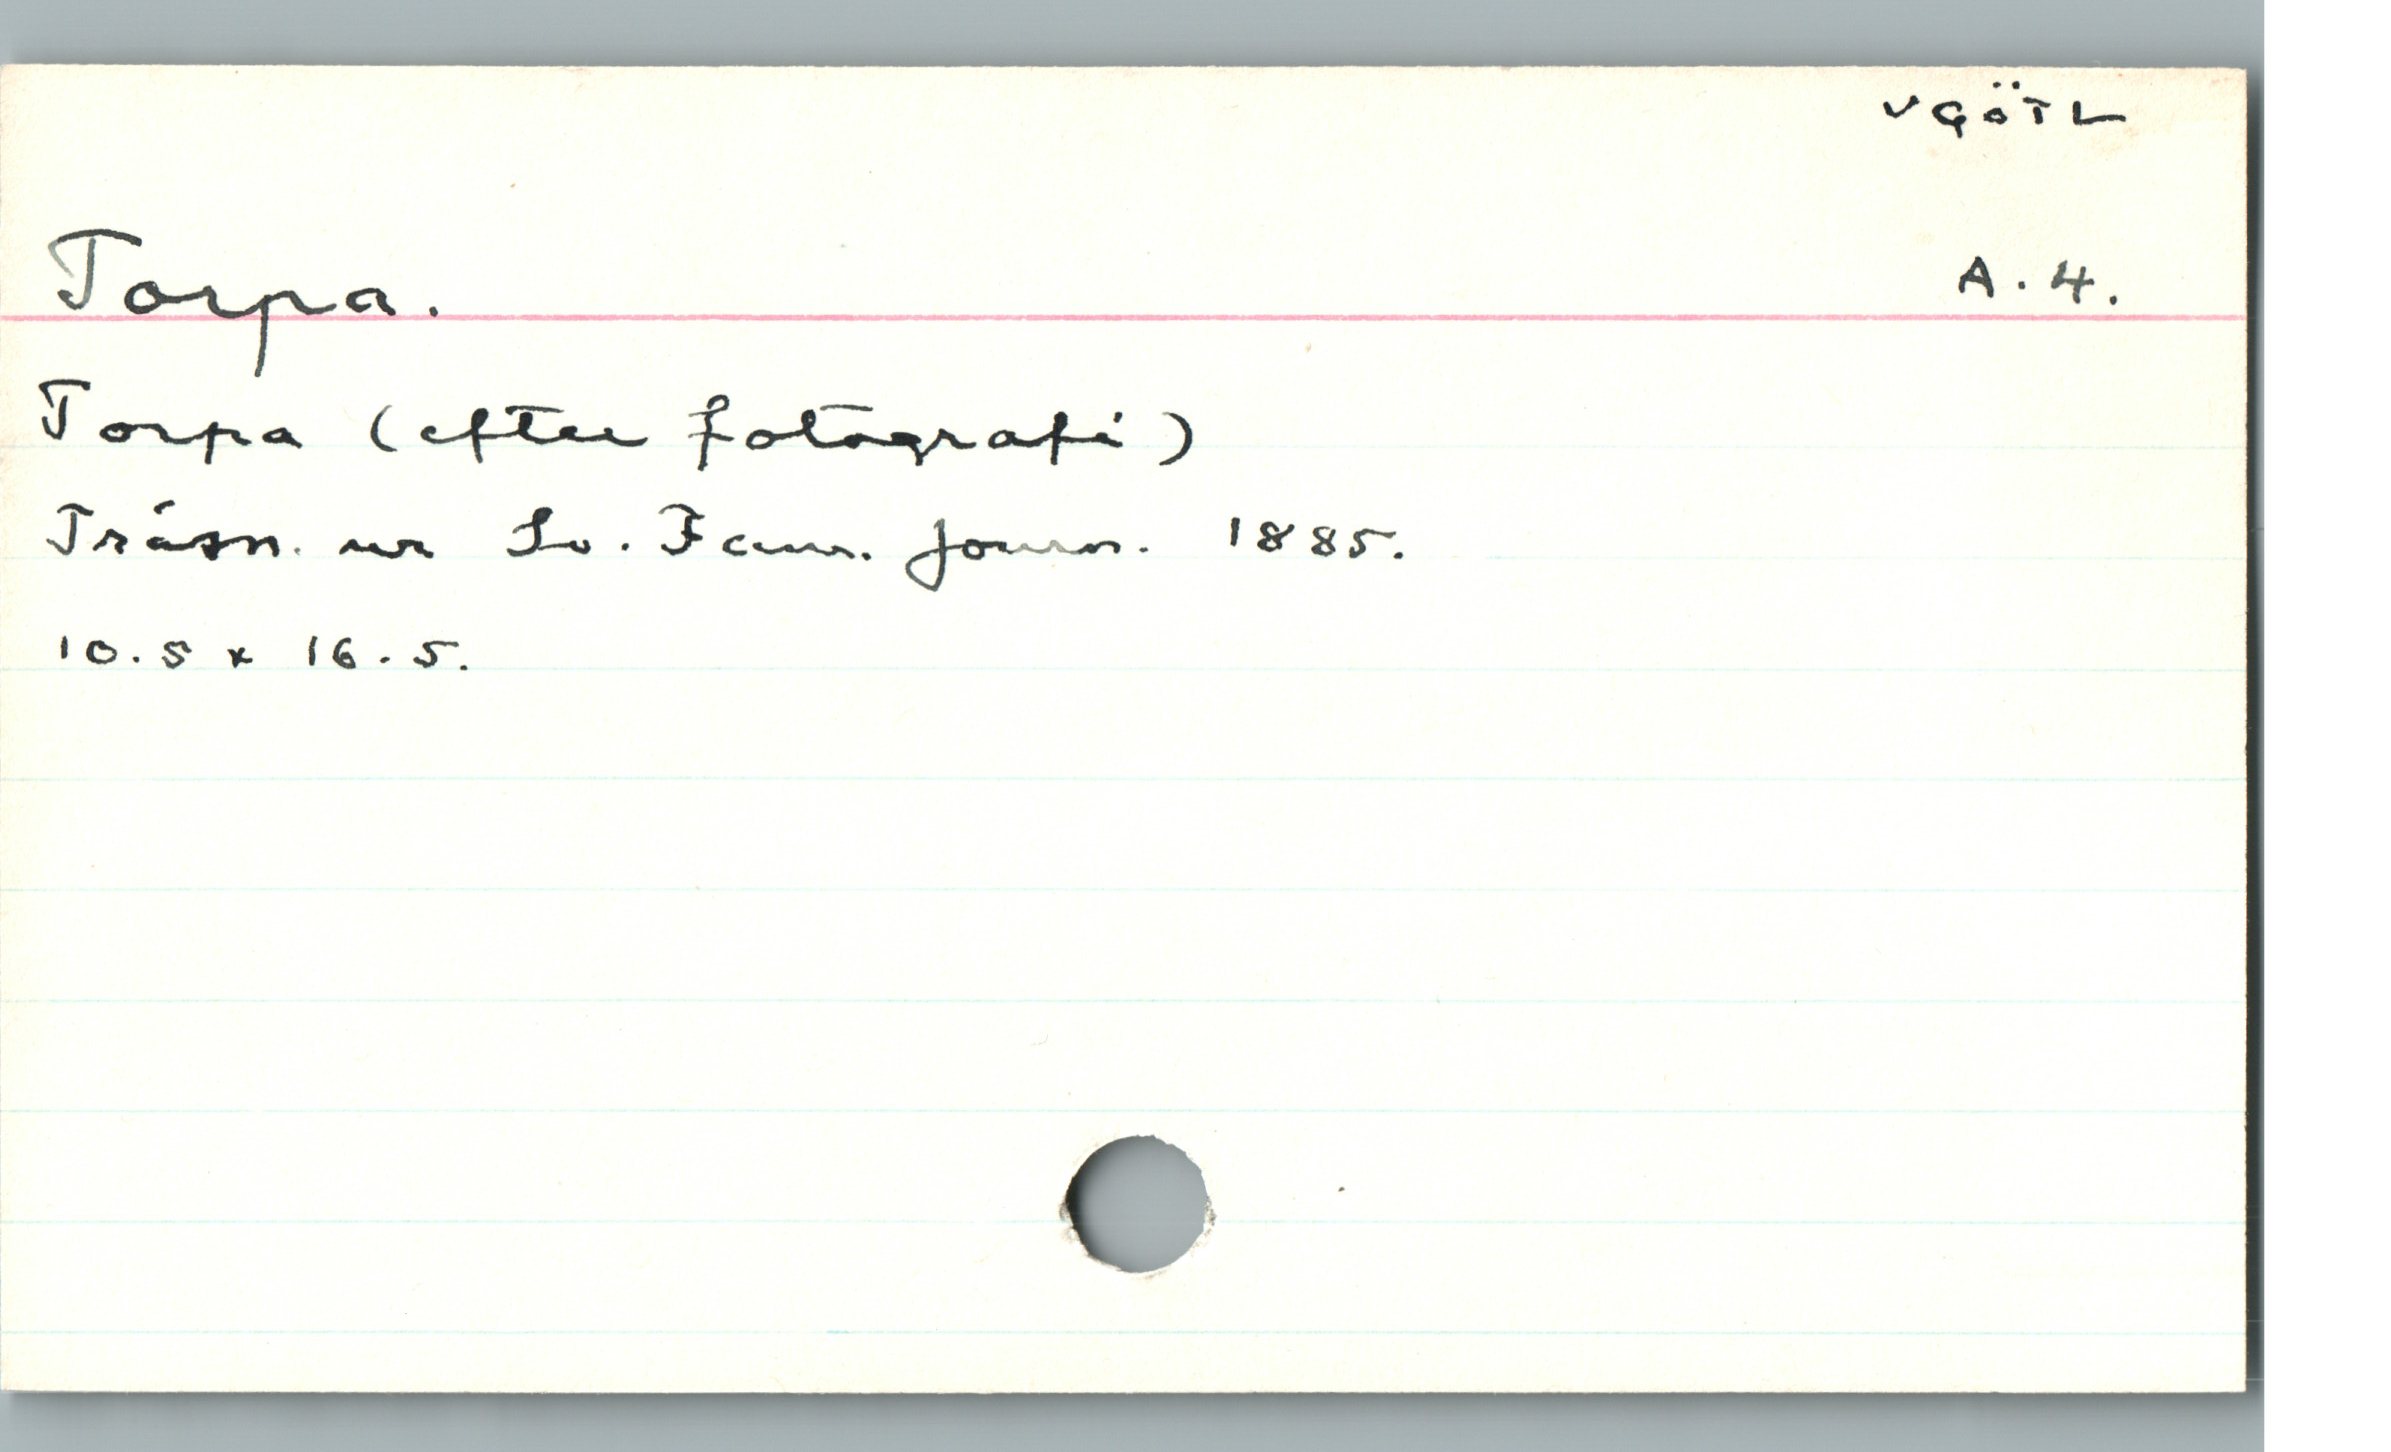 VGÖTL
Torpa. A.4.
Torpa (efter fotografi)
Träsn. ur Sv. Fam. Journ. 1885.
10.5 x 16.5.